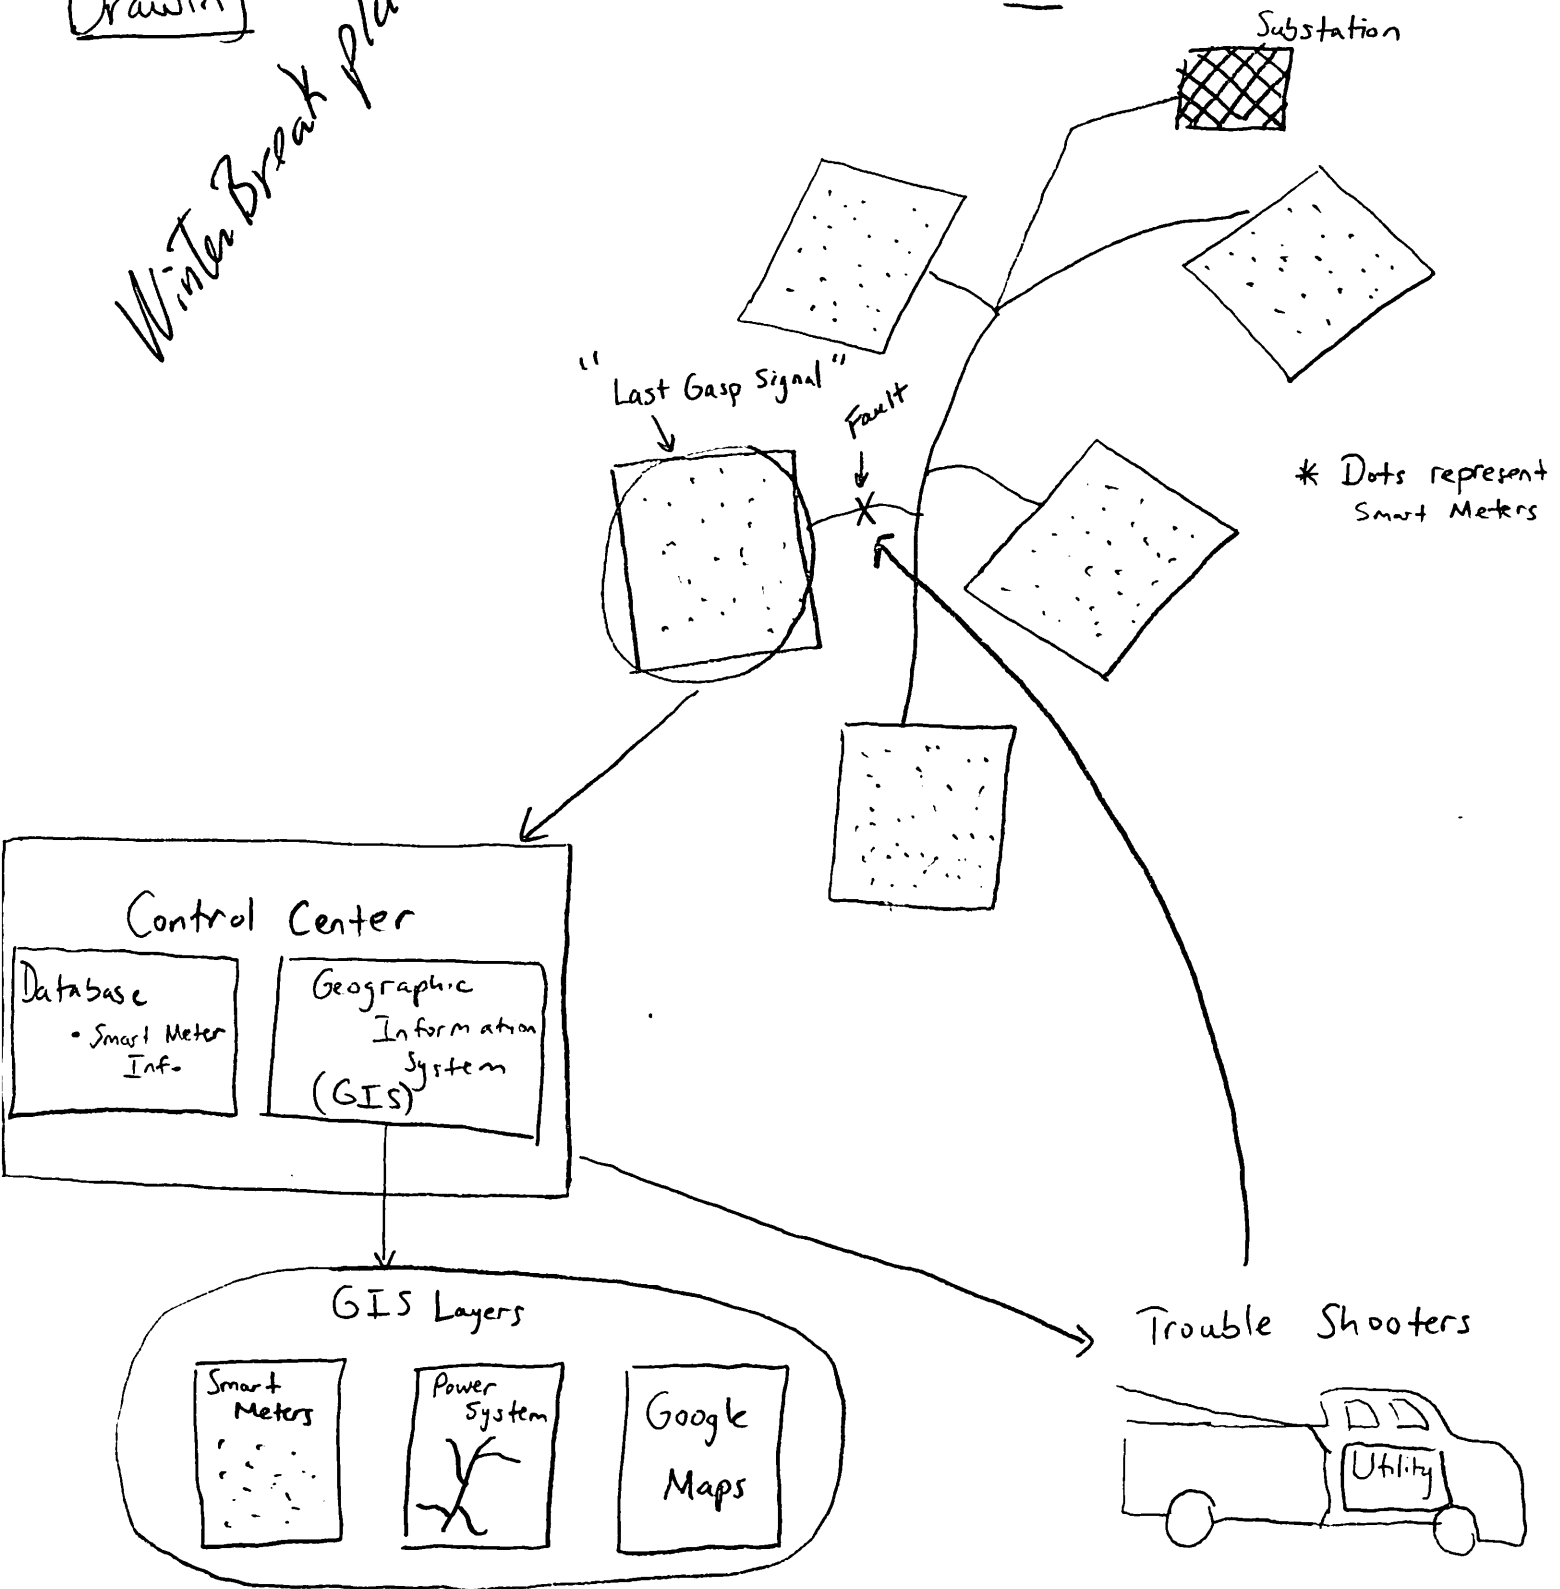 Winter Break
Substation
"Last Gasp Signal"
Fault
* Dots represent
Smart Meters
Control Center
Database
• Smart Meter
Info
Geographic
Information
System
(GIS)
GIS Layers
Smart
Meters
Power
System
Google
Maps
Trouble Shooters
Utility